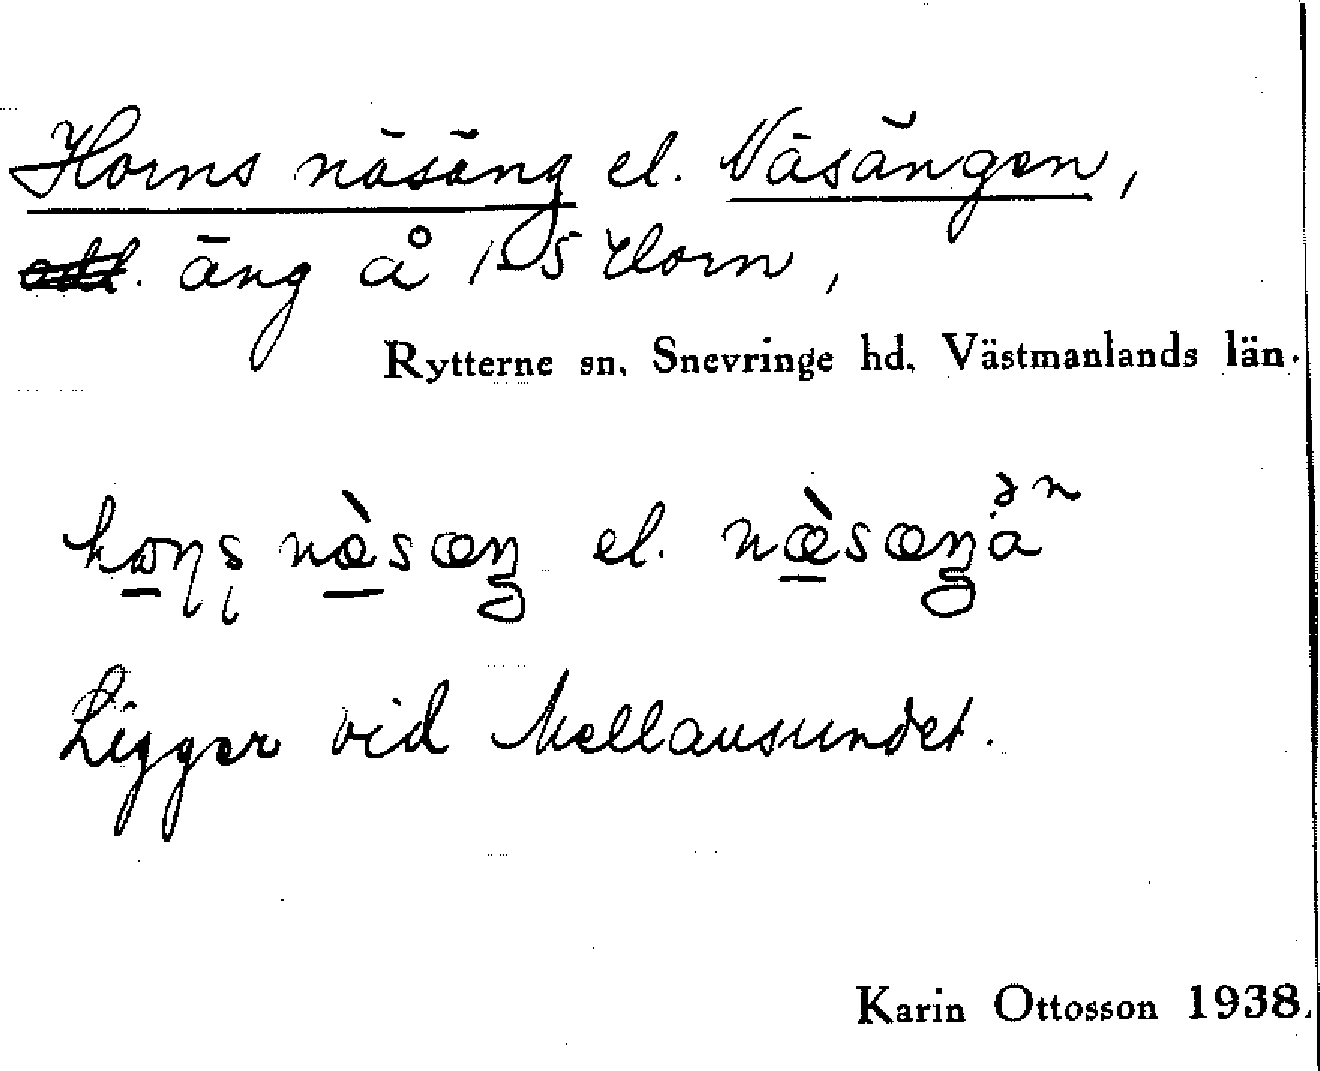 Horns näsäng el. Näsängen,
äng å 1-5 Horn,
Rytterne sn. Snevringe hd. Västmanlands län.
næ̀sæŋ el. næ̀sæŋa
Ligger vid Mellansundet.
Karin Ottosson 1938.